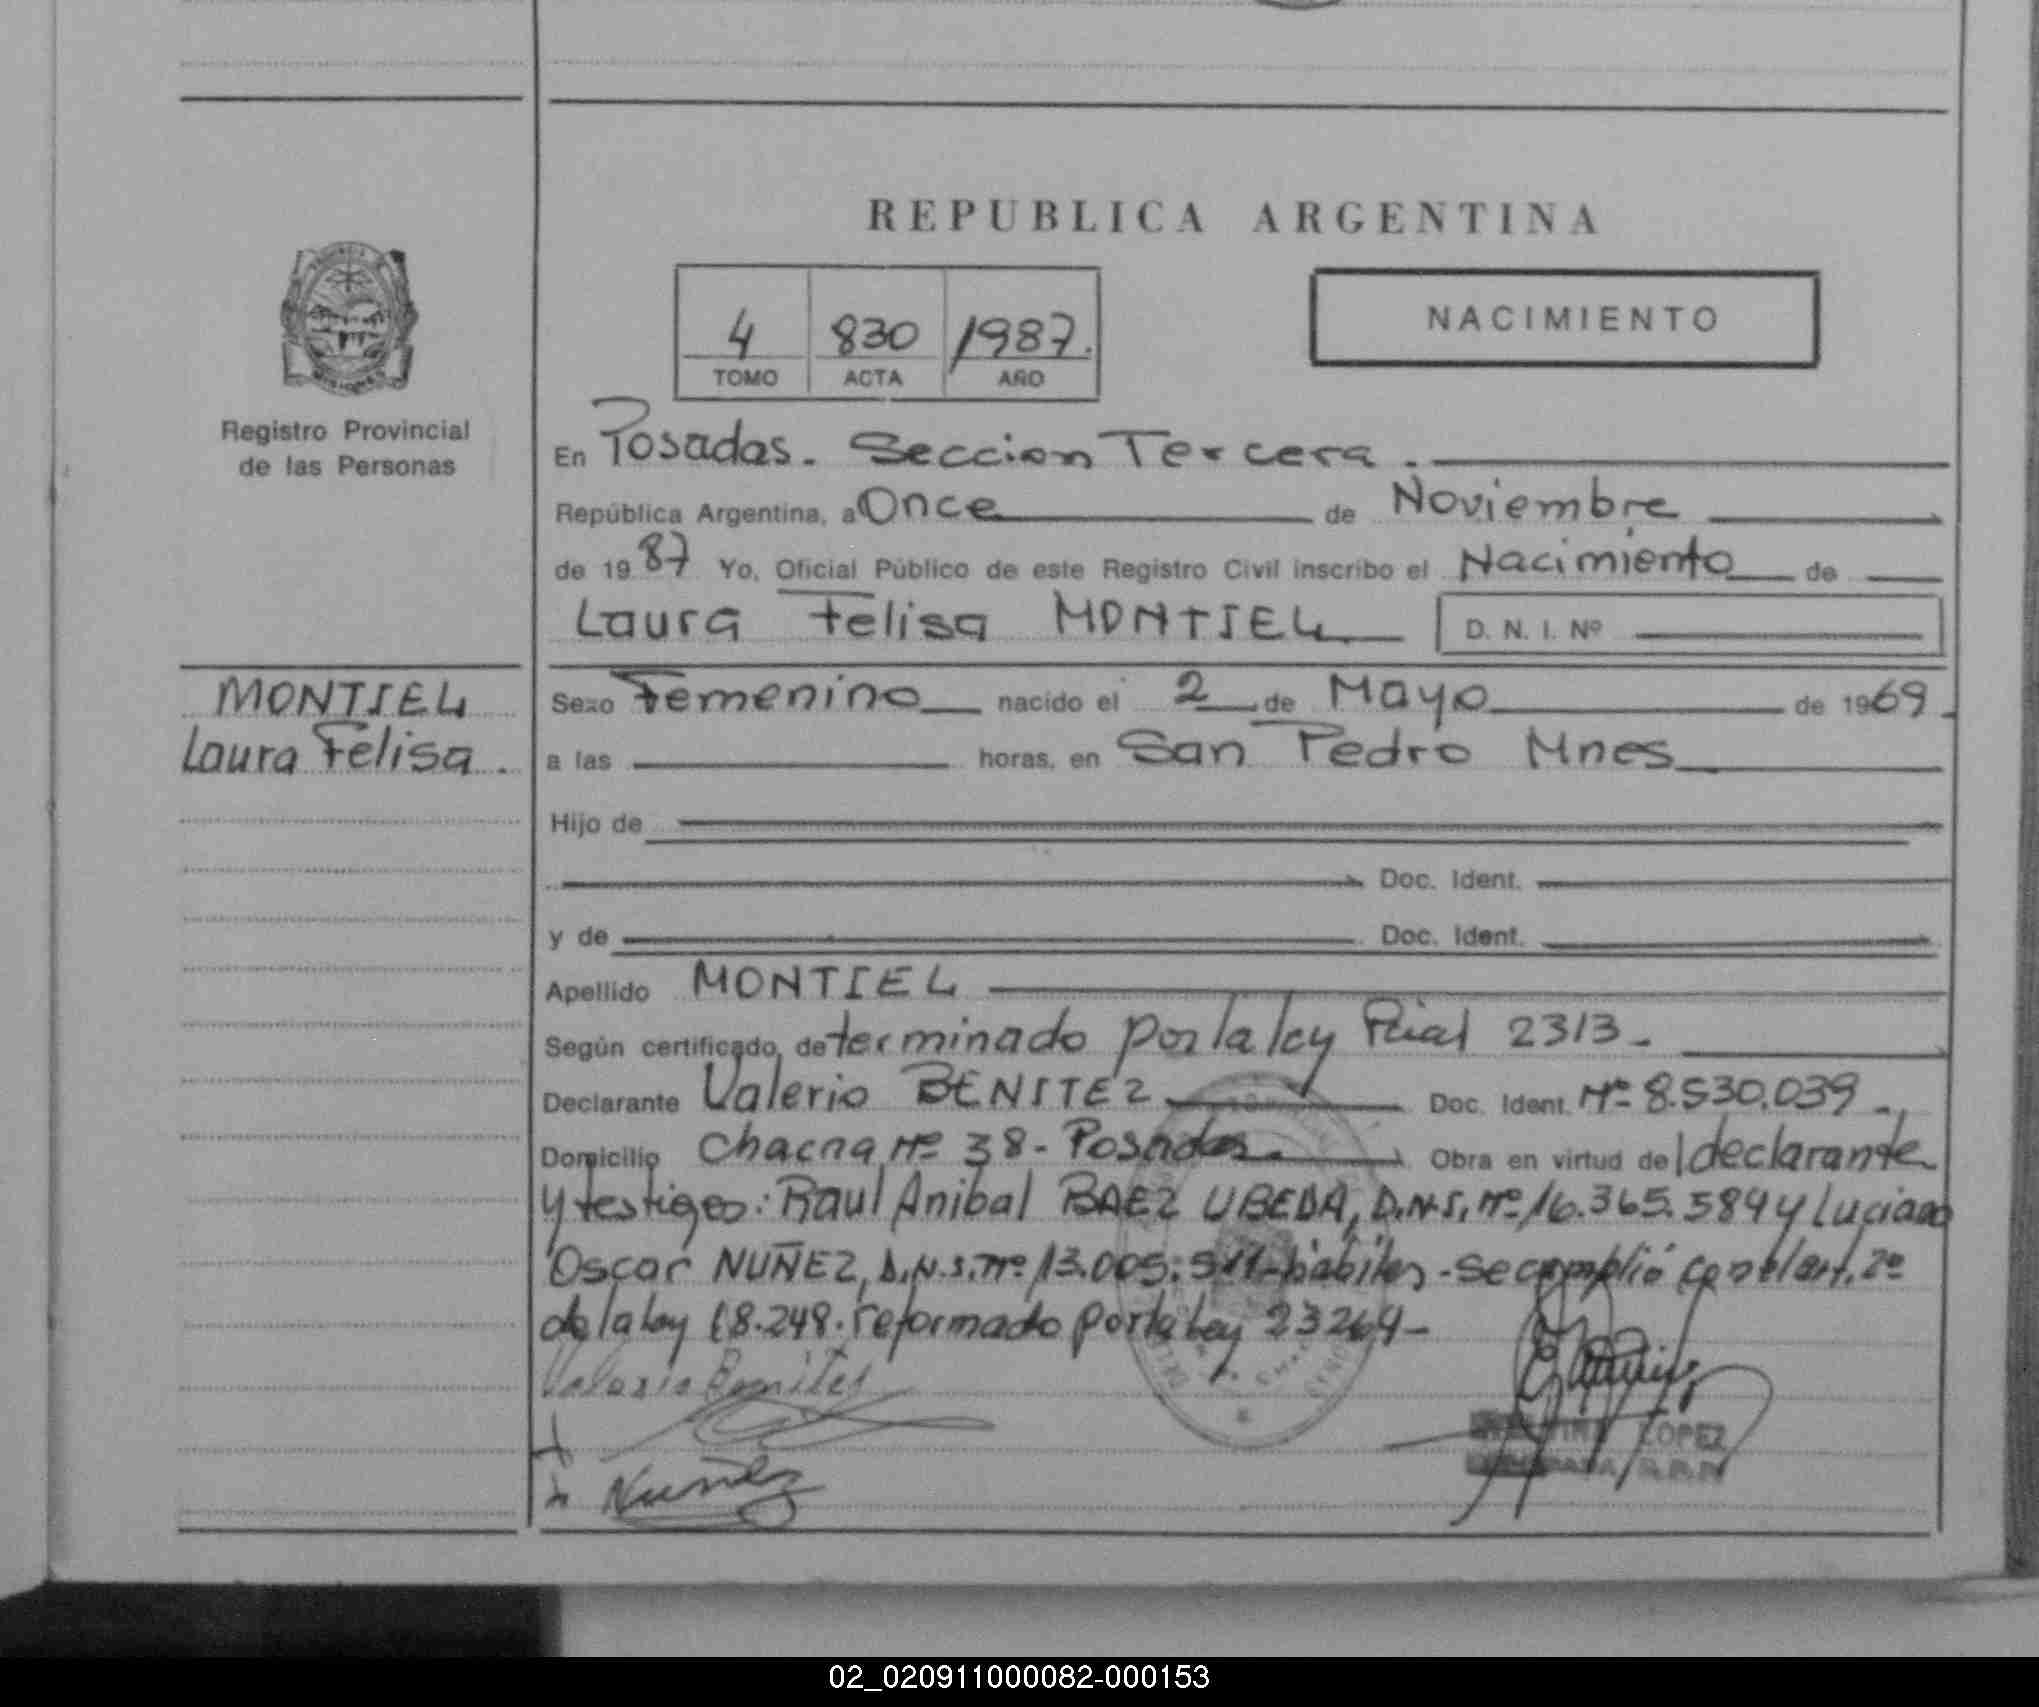 REPUBLICA ARGENTINA
4 830 1987.
TOMO ACTA AÑO
NACIMIENTO
Registro Provincial
de las Personas
En Posadas. Seccion Tercera.
República Argentina, a Once de Noviembre
de 1987 Yo, Oficial Público de este Registro Civil inscribo el Nacimiento de
Laura Felisa MONTIEL D. N. I. Nº
MONTIEL
Laura Felisa.
Sexo Femenino nacido el 2 de Mayo de 1969.
a las horas, en San Pedro Mnes
Hijo de
Doc. Ident.
y de Doc. Ident.
Apellido MONTIEL
Según certificado determinado por la ley 2313.
Declarante Valerio BENITEZ Doc. Ident. Nº 8.530.039.
Domicilio Chacra Nº 38 - Posadas. Obra en virtud del declarante
y testigos: Raul Anibal BAEZ UBEDA, D.N.I. Nº 16.365.584 y Luciano
Oscar NUÑEZ, D.N.I. Nº 13.005. habiles - se cumplió con el art. 2º
de la ley 18.248. reformado por la ley 23264-
Valerio Benites
Nuñez
LOPEZ
02_020911000082-000153